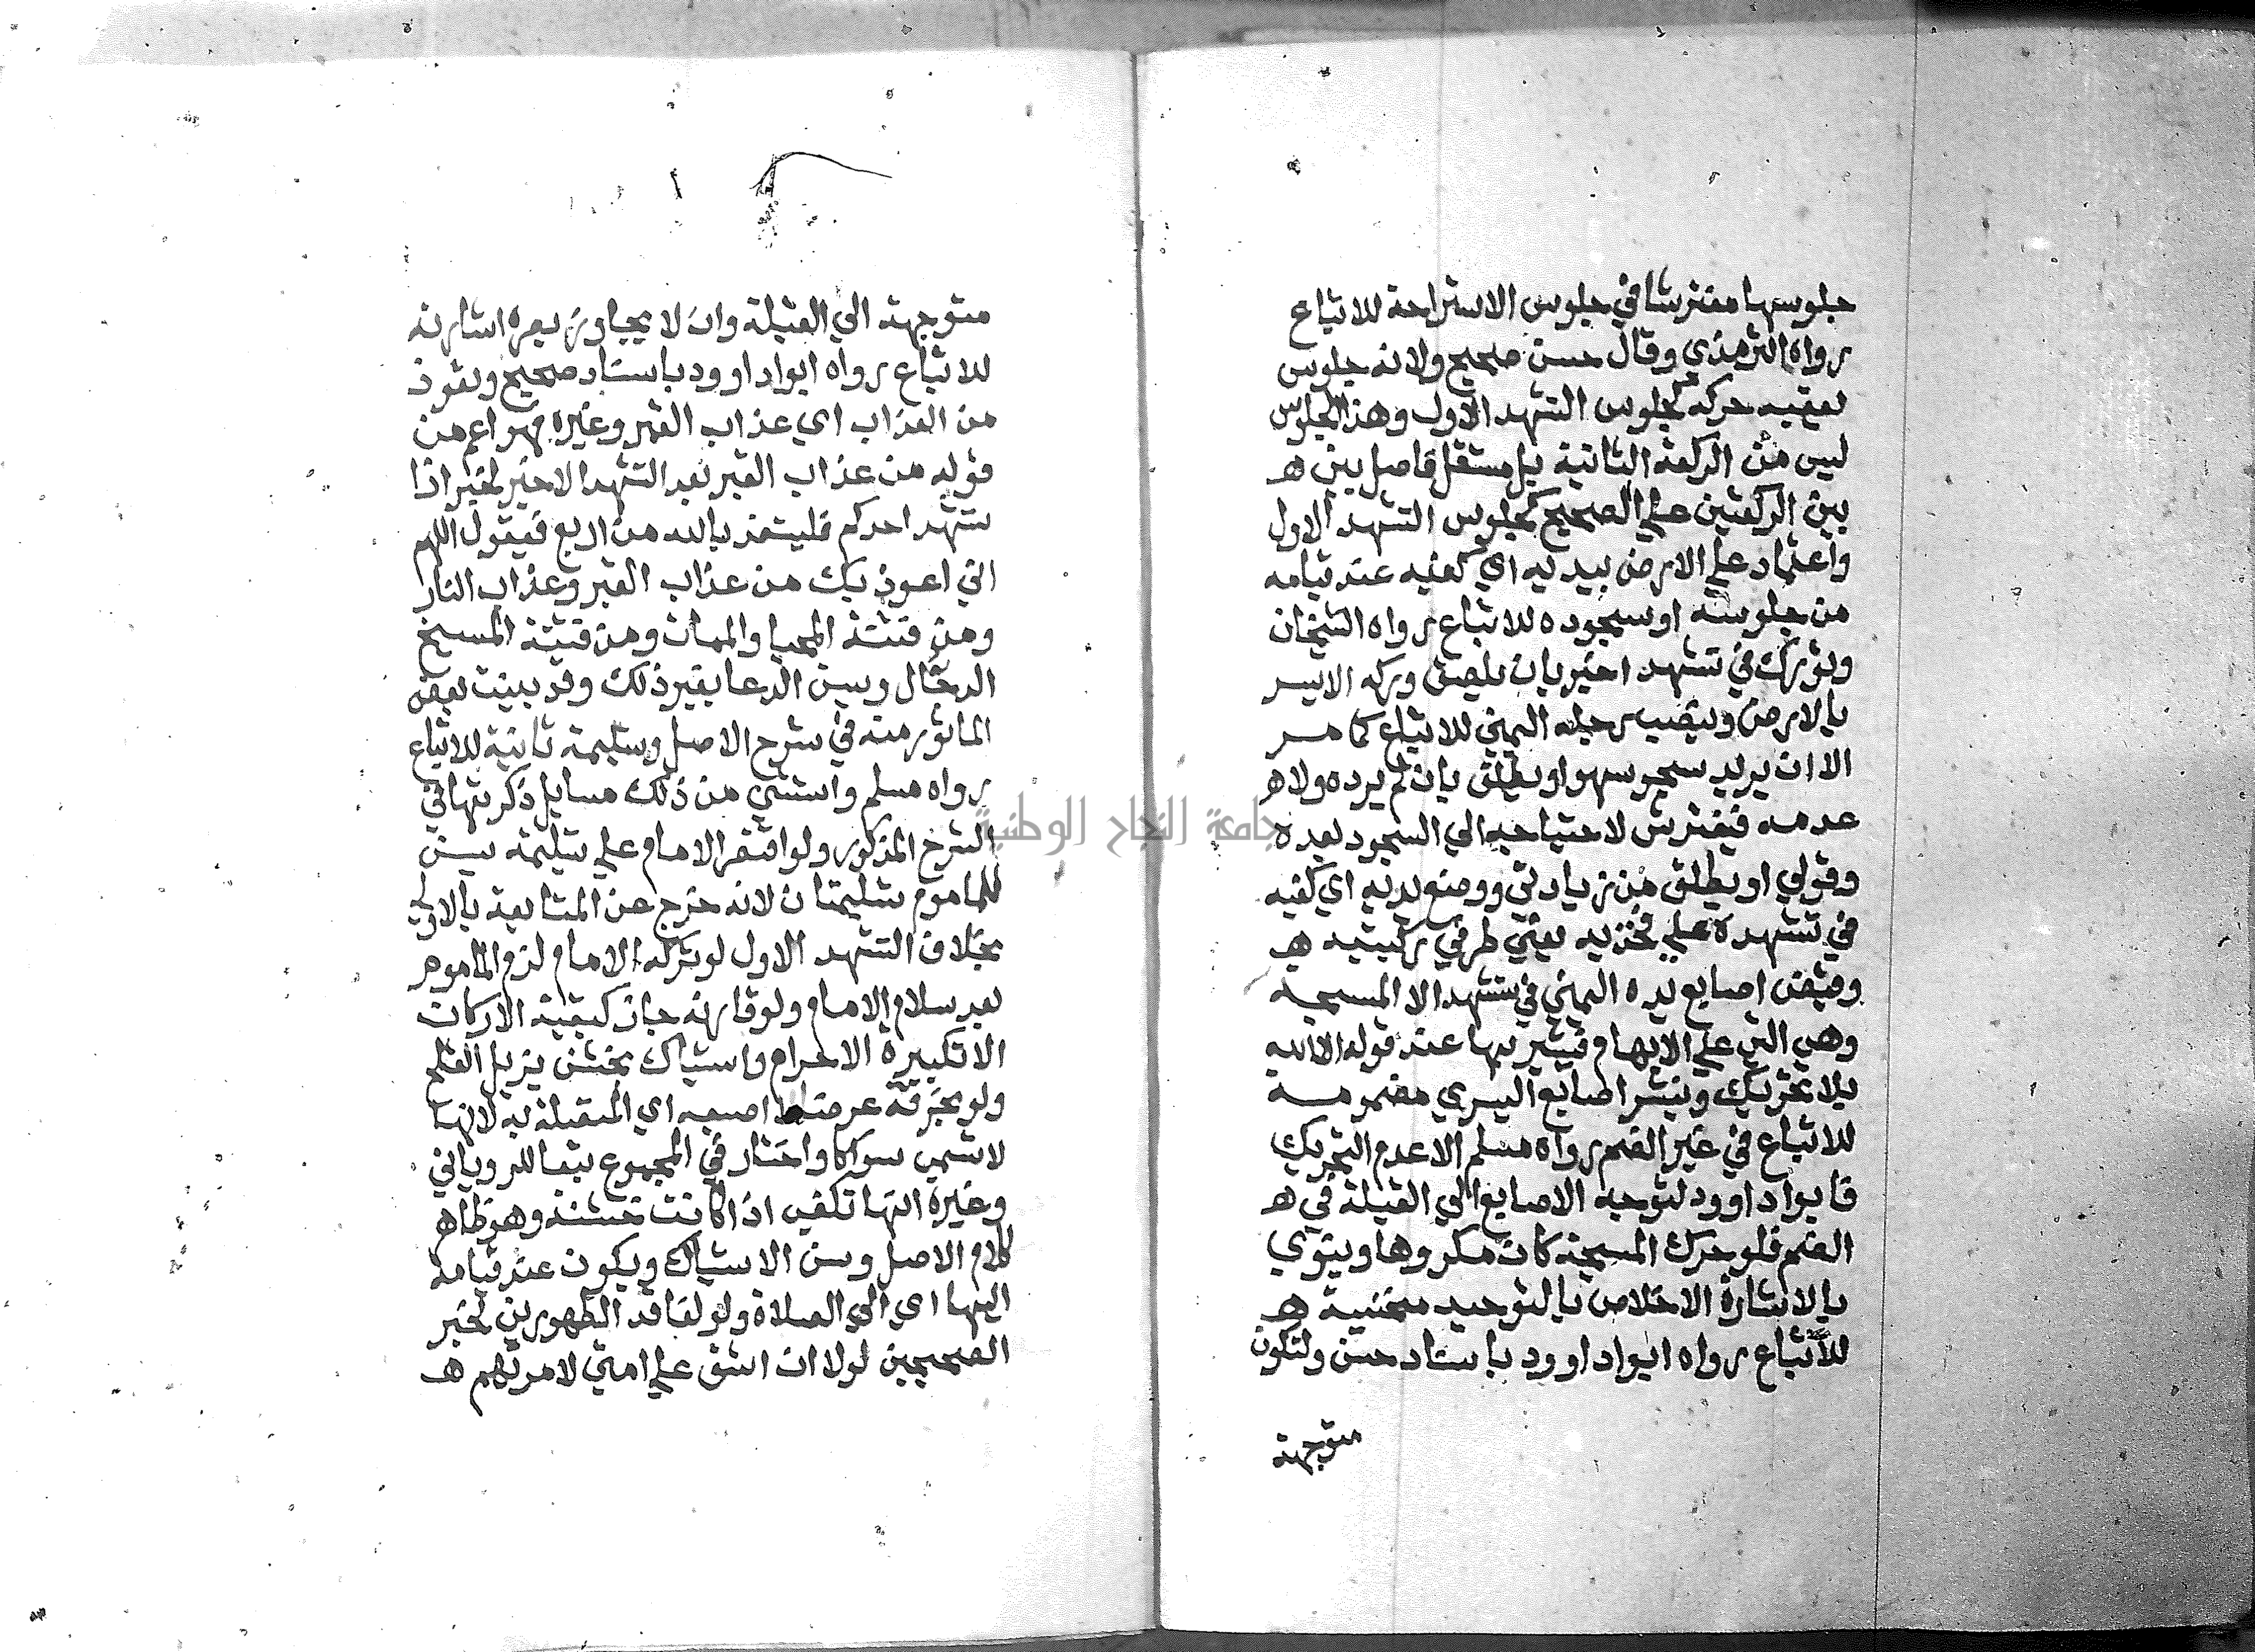 جلوسها مفترشا في جلوس الاستراحة للاتباع
رواه الترمذي وقال حسن صحيح ولانه جلوس
يعقبه حركة كجلوس التشهد الاول وهذا الجلوس
ليس من الركعة الثانية بل مستقل فاصل بين هـ
بين الركعتين علي الصحيح كجلوس التشهد الاول
واعتماد علي الارض بيديه اي كفيه عند قيامه
من جلوسه او سجوده للاتباع رواه الشيخان
وتورك في تشهد اخير بان يلصق وركه الايسر
بالارض وينصب رجله اليمني للاتباع كما مر
الا ان يريد سجو سهو او يطلق بان لم يرده ولا هـ
عدمه فيفترش لاحتياجه الي السجود بعده
وقولي او يطلق من زيادتي ووضع يديه اي كفيه
في تشهده علي فخذيه يعني طرفي ركبتيه هـ
وقبض اصابع يده اليمني في تشهد الا المسبحة
وهي التي علي الابهام فيشير بها عند قوله الا الله
بلا تحريك وينشر اصابع اليسري مضمومه
للاتباع في غير الضم رواه مسلم الا عدم التحريك
فابو داوود لتوجيه الاصابع الي القبلة في هـ
الضم فلو حرك المسبحة كان مكروها وينوي
بالاشارة الاخلاص بالتوحيد منحنية هـ
للاتباع رواه ابو داوود باسناد حسن ولتكون
متوجهة
متوجهة الي القبلة وان لا يجاوز بصره اشارته
للاتباع رواه ابو داوود باسناد صحيح وتعوذ
من العذاب اي عذاب القبر وغيره فهو اعم من
قوله من عذاب القبر بعد التشهد الاخير لخبر اذا
تشهد احدكم فليتعذ بالله من اربع فيقول اللهم
اني اعوذ بك من عذاب القبر وعذاب النار
ومن فتنة المحيا والممات ومن فتنة المسيخ
الدجال ويسن الدعا بغير ذلك وقد بينت بعض
الماثور منه في شرح الاصل وتسليمة ثانية للاتباع
رواه مسلم واستثني من ذلك مسايل ذكرتها في
الشرح المذكور ولو اقتصر الامام علي تسليمة يسن
للماموم تسليمتان لانه خرج عن المتابعة بالاولي
بخلاف التشهد الاول لو تركه الامام لزم الماموم
بعد سلام الامام ولو قارنه جاز كبقية الاركان
الا تكبيرة الاحرام واستياك بخشن يزيل القلح
ولو بخرقة عرضا لا اصبعه اي المتصلة به لانها
لا تسمي سواكا واختار في المجموع تبعا للروياني
وغيره انها تكفي اذا كانت خشنة وهو ظاهر
كلام الاصل وسن الاستياك ويكون عند قيامه
اليها اي الي الصلاة ولو لفاقد الطهورين لخبر
الصحيحين لولا ان اشق علي امتي لامرتهم هـ
جامعة النجاح الوطنية